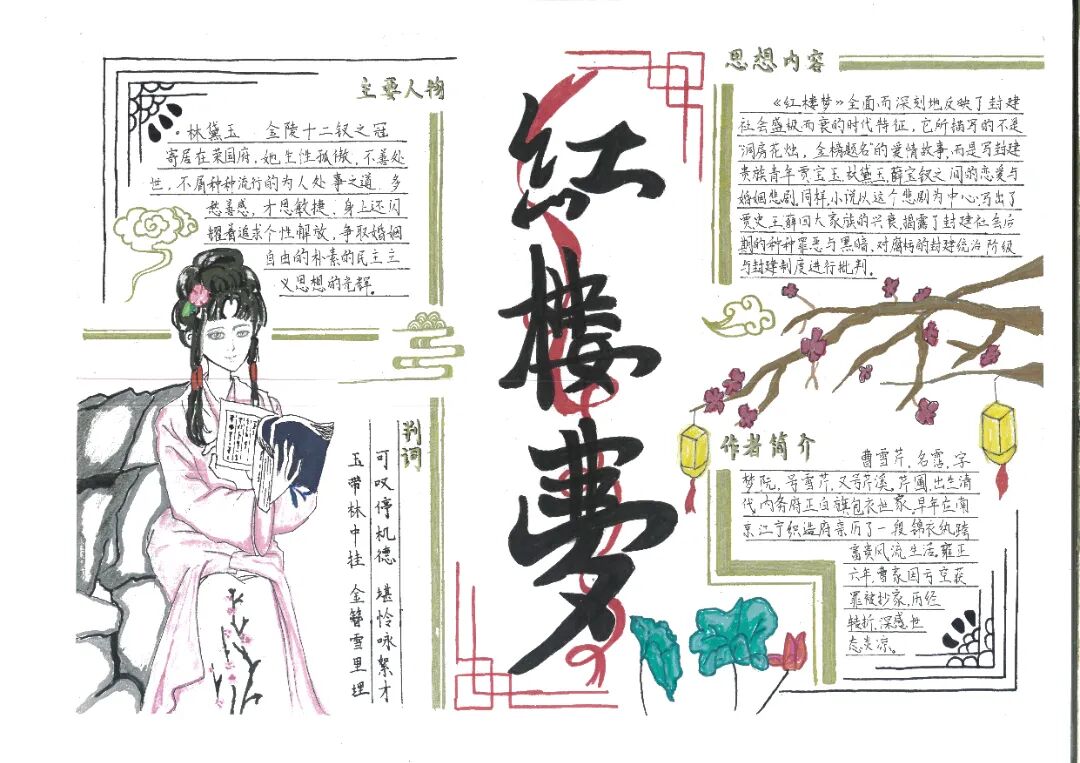 主要人物
·林黛玉 金陵十二钗之冠
寄居在荣国府，她生性孤傲，不善处
世，不屑种种流行的为人处事之道。多
愁善感，才思敏捷。身上还闪
耀着追求个性解放，争取婚姻
自由的朴素的民主主
义思想的光辉。
判词
可叹停机德 堪怜咏絮才
玉带林中挂 金簪雪里埋
红楼梦
思想内容
《红楼梦》全面而深刻地反映了封建
社会盛极而衰的时代特征，它所描写的不是
“洞房花烛，金榜题名”的爱情故事，而是写封建
贵族青年贾宝玉、林黛玉、薛宝钗之间的恋爱与
婚姻悲剧，同样，小说以这个悲剧为中心，写出了
贾史王薛四大家族的兴衰，揭露了封建社会后
期的种种罪恶与黑暗，对腐朽的封建统治阶级
与封建制度进行批判。
作者简介
曹雪芹，名霑，字
梦阮，号雪芹，又号芹溪，芹圃，出生清
代内务府正白旗包衣世家。早年在南
京江宁织造府亲历了一段锦衣纨跨
富贵风流生活，雍正
六年，曹家因亏空获
罪被抄家，历经
转折，深感世
态炎凉。